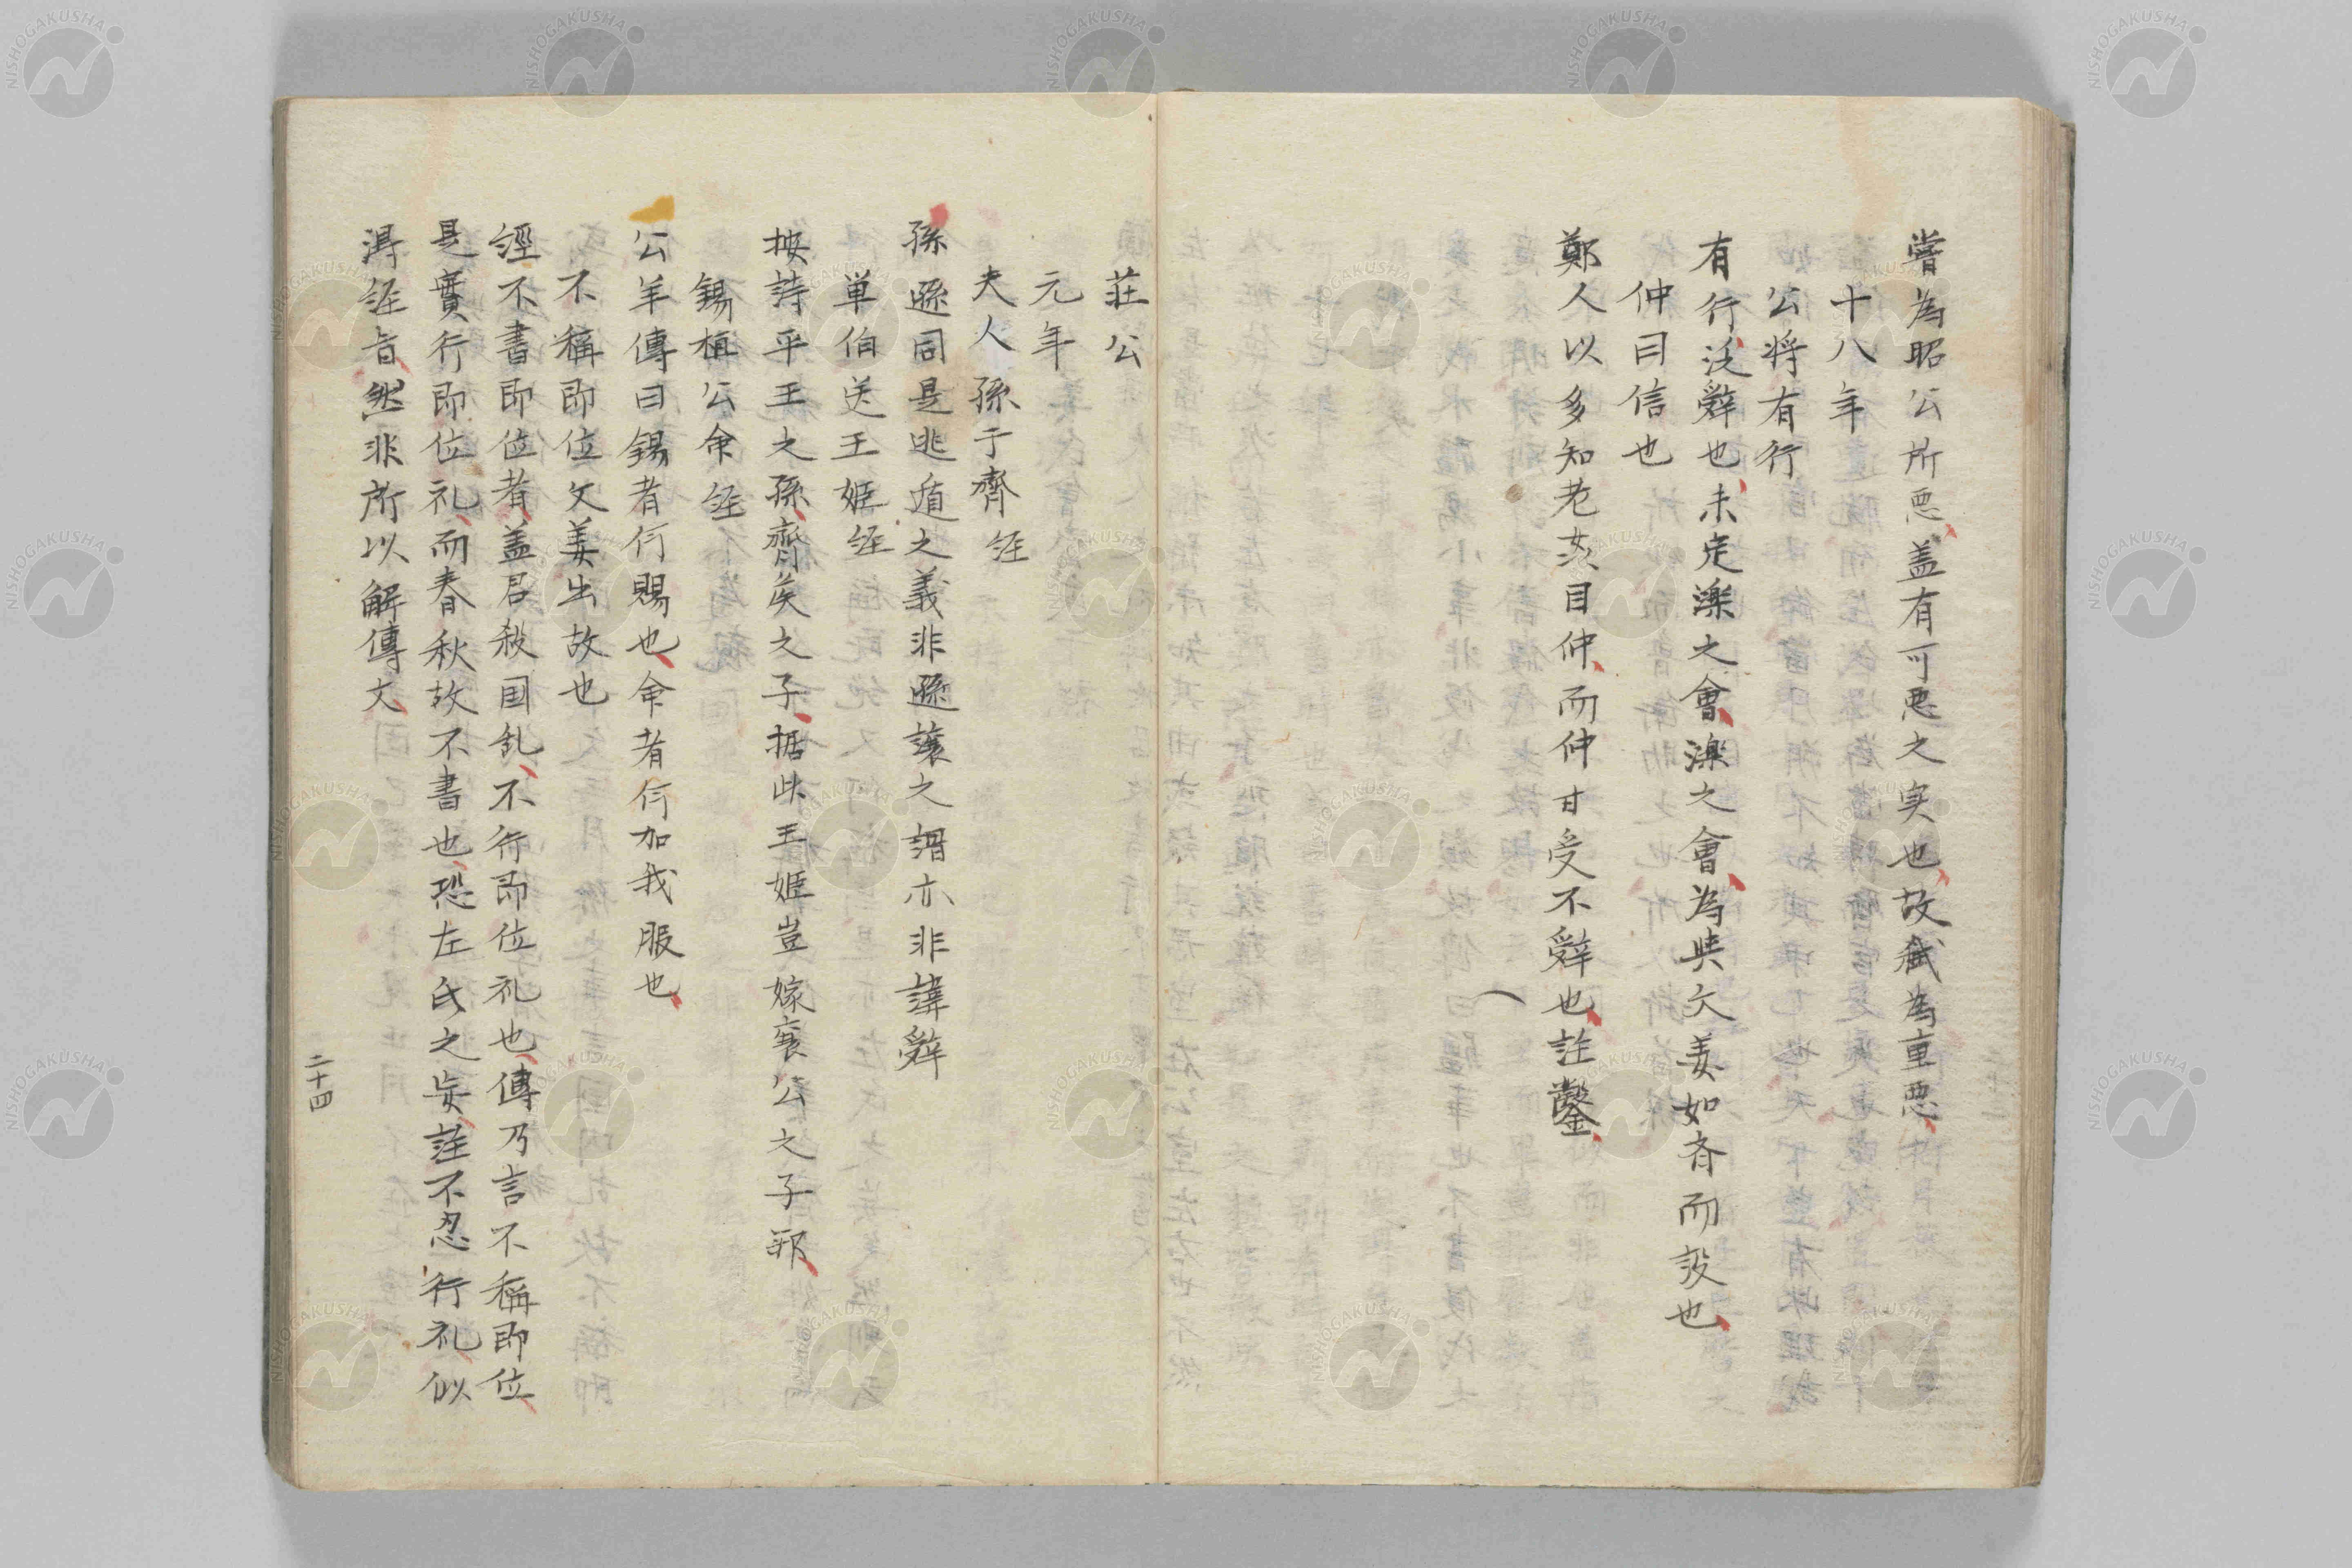 嘗為昭公所悪盖有可悪之実也故弑為重悪
十八年
公将有行
有行泛辭也未定濼之會濼之會為與文姜如斉而設也
仲曰信也
鄭人以多知老
目仲而仲甘受不辞也註鑿
莊公
元年
夫人孫于齊経
孫遜同是逃遁之義非遜讓之謂亦非諱辭
単伯送王姬経
按詩平王之孫齊侯之子拠此王姬豈嫁襄公之子耶
錫桓公命経
公羊傳曰錫者何賜也命者何加我服也
不稱即位文姜出故也
經不書即位者盖君殺国乱不行即位礼也傳乃言不稱即位
是實行即位礼而春秋故不書也恐左氏之妄註不忍行礼似
得経旨然非所以解傳文
二十四
NISHOGAKUSHA